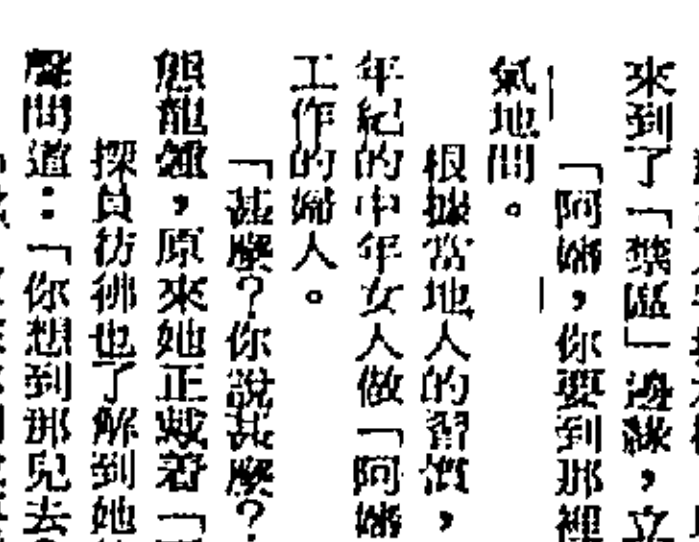 來到了「禁區」邊緣，立
「阿嬸，你要到那裡
氣地問。
根據當地人的習慣，
年紀的中年女人做「阿嬸
工作的婦人。
「甚麼？你說甚麼？
態龍鍾，原來她正戴着「
探員彷彿也了解到她
聲問道：「你想到那兒去